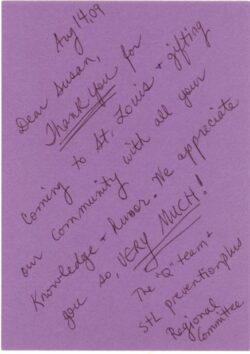 Aug 14, 09
Dear Susan,
Thank you for
coming to St. Louis + gifting
our community with all your
Knowledge + humor. We appreciate
you so, VERY MUCH!
The "Q" team +
STL prevention
Regional
Committee